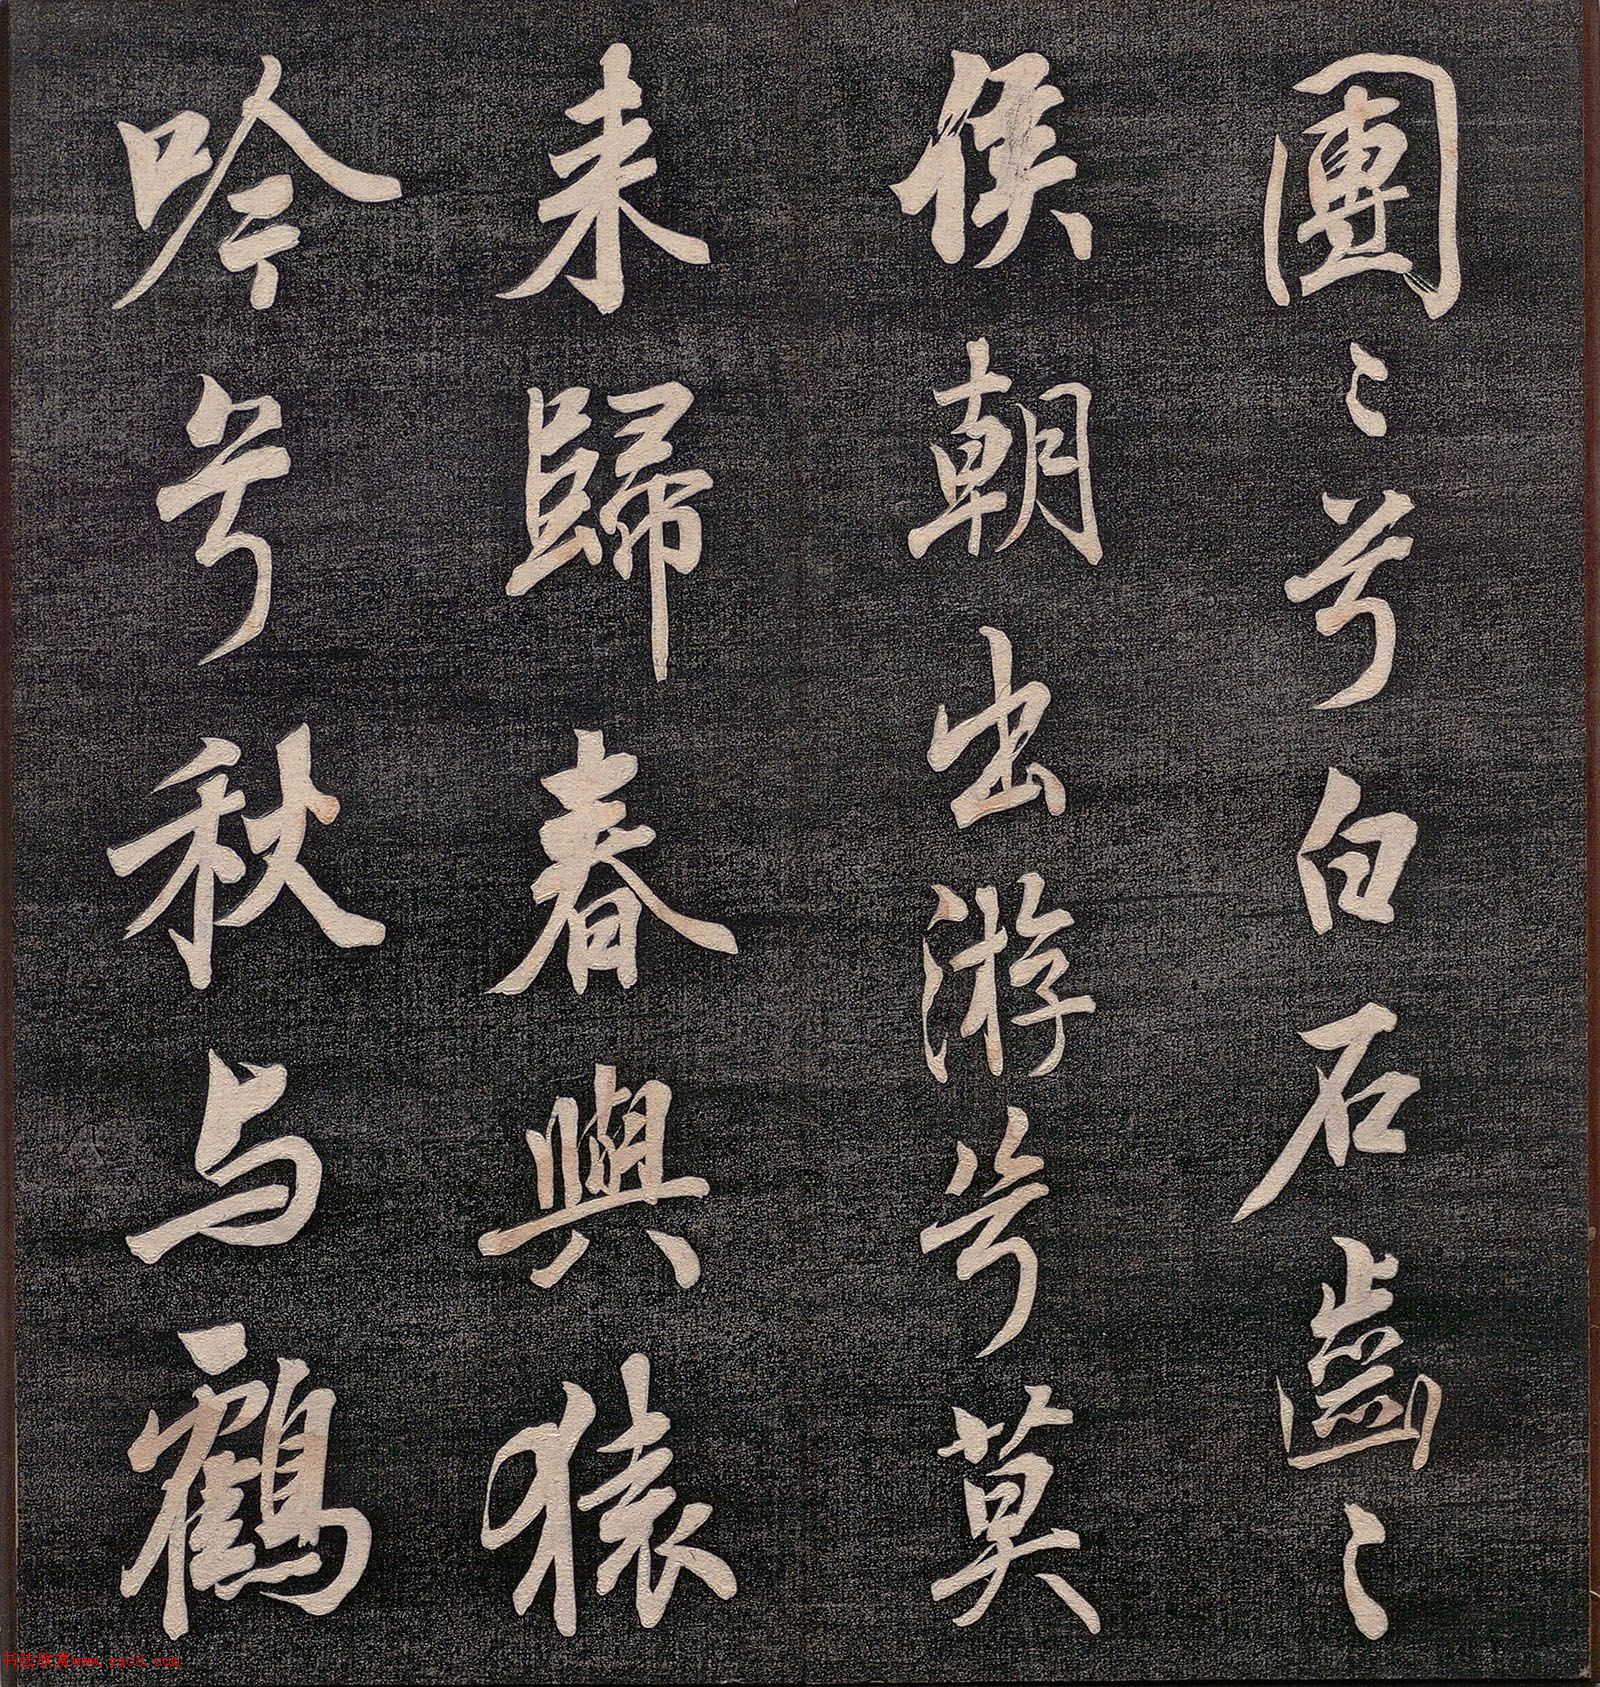 團〻兮白石齒〻
侯朝出游兮莫
来歸春與猿
吟兮秋与鶴
书法欣赏www.yac8.com